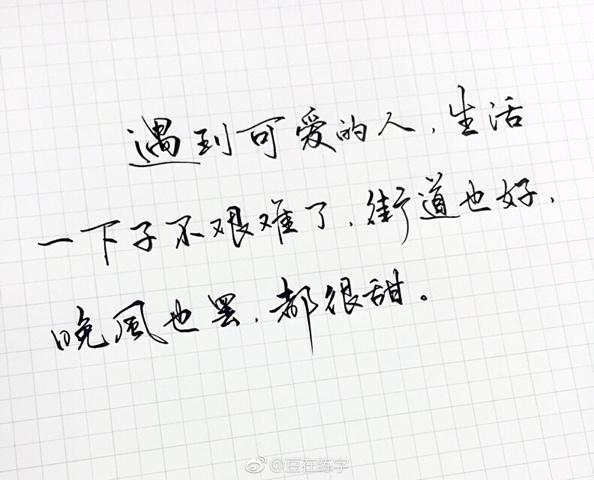 遇到可爱的人,生活
一下子不艰难了,街道也好,
晚風也罢,都很甜。
@豆在练字